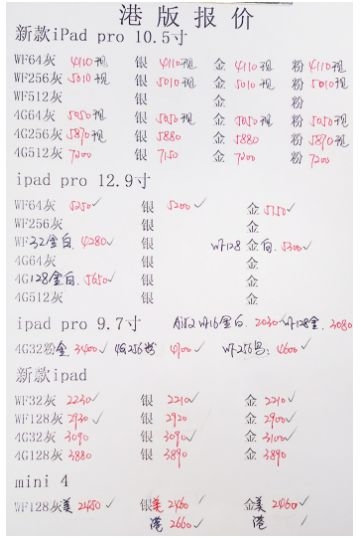 港版报价
新款iPad pro 10.5寸
WF64灰 4110现 银 4110现 金 4110现 粉 4110现
WF256灰 5010现 银 5010现 金 5010现 粉 5010现
WF512灰 银 金 粉
4G64灰 5050现 银 5050现 金 5050现 粉 5050现
4G256灰 5890现 银 5880 金 5880 粉 5890现
4G512灰 7200 银 7150 金 7200 粉 7200
ipad pro 12.9寸
WF64灰 5250✓ 银 5200✓ 金 5150✓
WF256灰 银 金
WF32金白 4280✓ 银 WF128金白 5300✓
4G64灰 银 金
4G128金白 5650✓ 银 金
4G512灰 银 金
ipad pro 9.7寸 Air2 WF16金白 2030✓ WF128金 3080
4G32粉金 3400✓ 4G256 4900✓ WF256 4600✓
新款ipad
WF32灰 2230✓ 银 2210✓ 金 2210✓
WF128灰 2930✓ 银 2920 金 2900✓
4G32灰 3090 银 3090✓ 金 3100✓
4G128灰 3880 银 3890 金 3890
mini 4
WF128灰美 2450✓ 银美 2460✓ 金美 2460✓
港 2660✓ 港 ✓